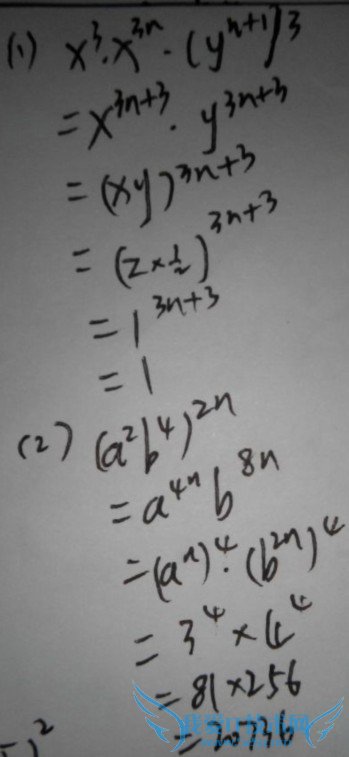 (1) x³·x³ⁿ·(yⁿ⁺¹)³
=x³ⁿ⁺³·y³ⁿ⁺³
=(xy)³ⁿ⁺³
=(2×½)³ⁿ⁺³
=1³ⁿ⁺³
=1
(2) (a²b⁴)²ⁿ
=a⁴ⁿb⁸ⁿ
=(aⁿ)⁴·(b²ⁿ)⁴
=3⁴×4⁴
=81×256
=20736
)²